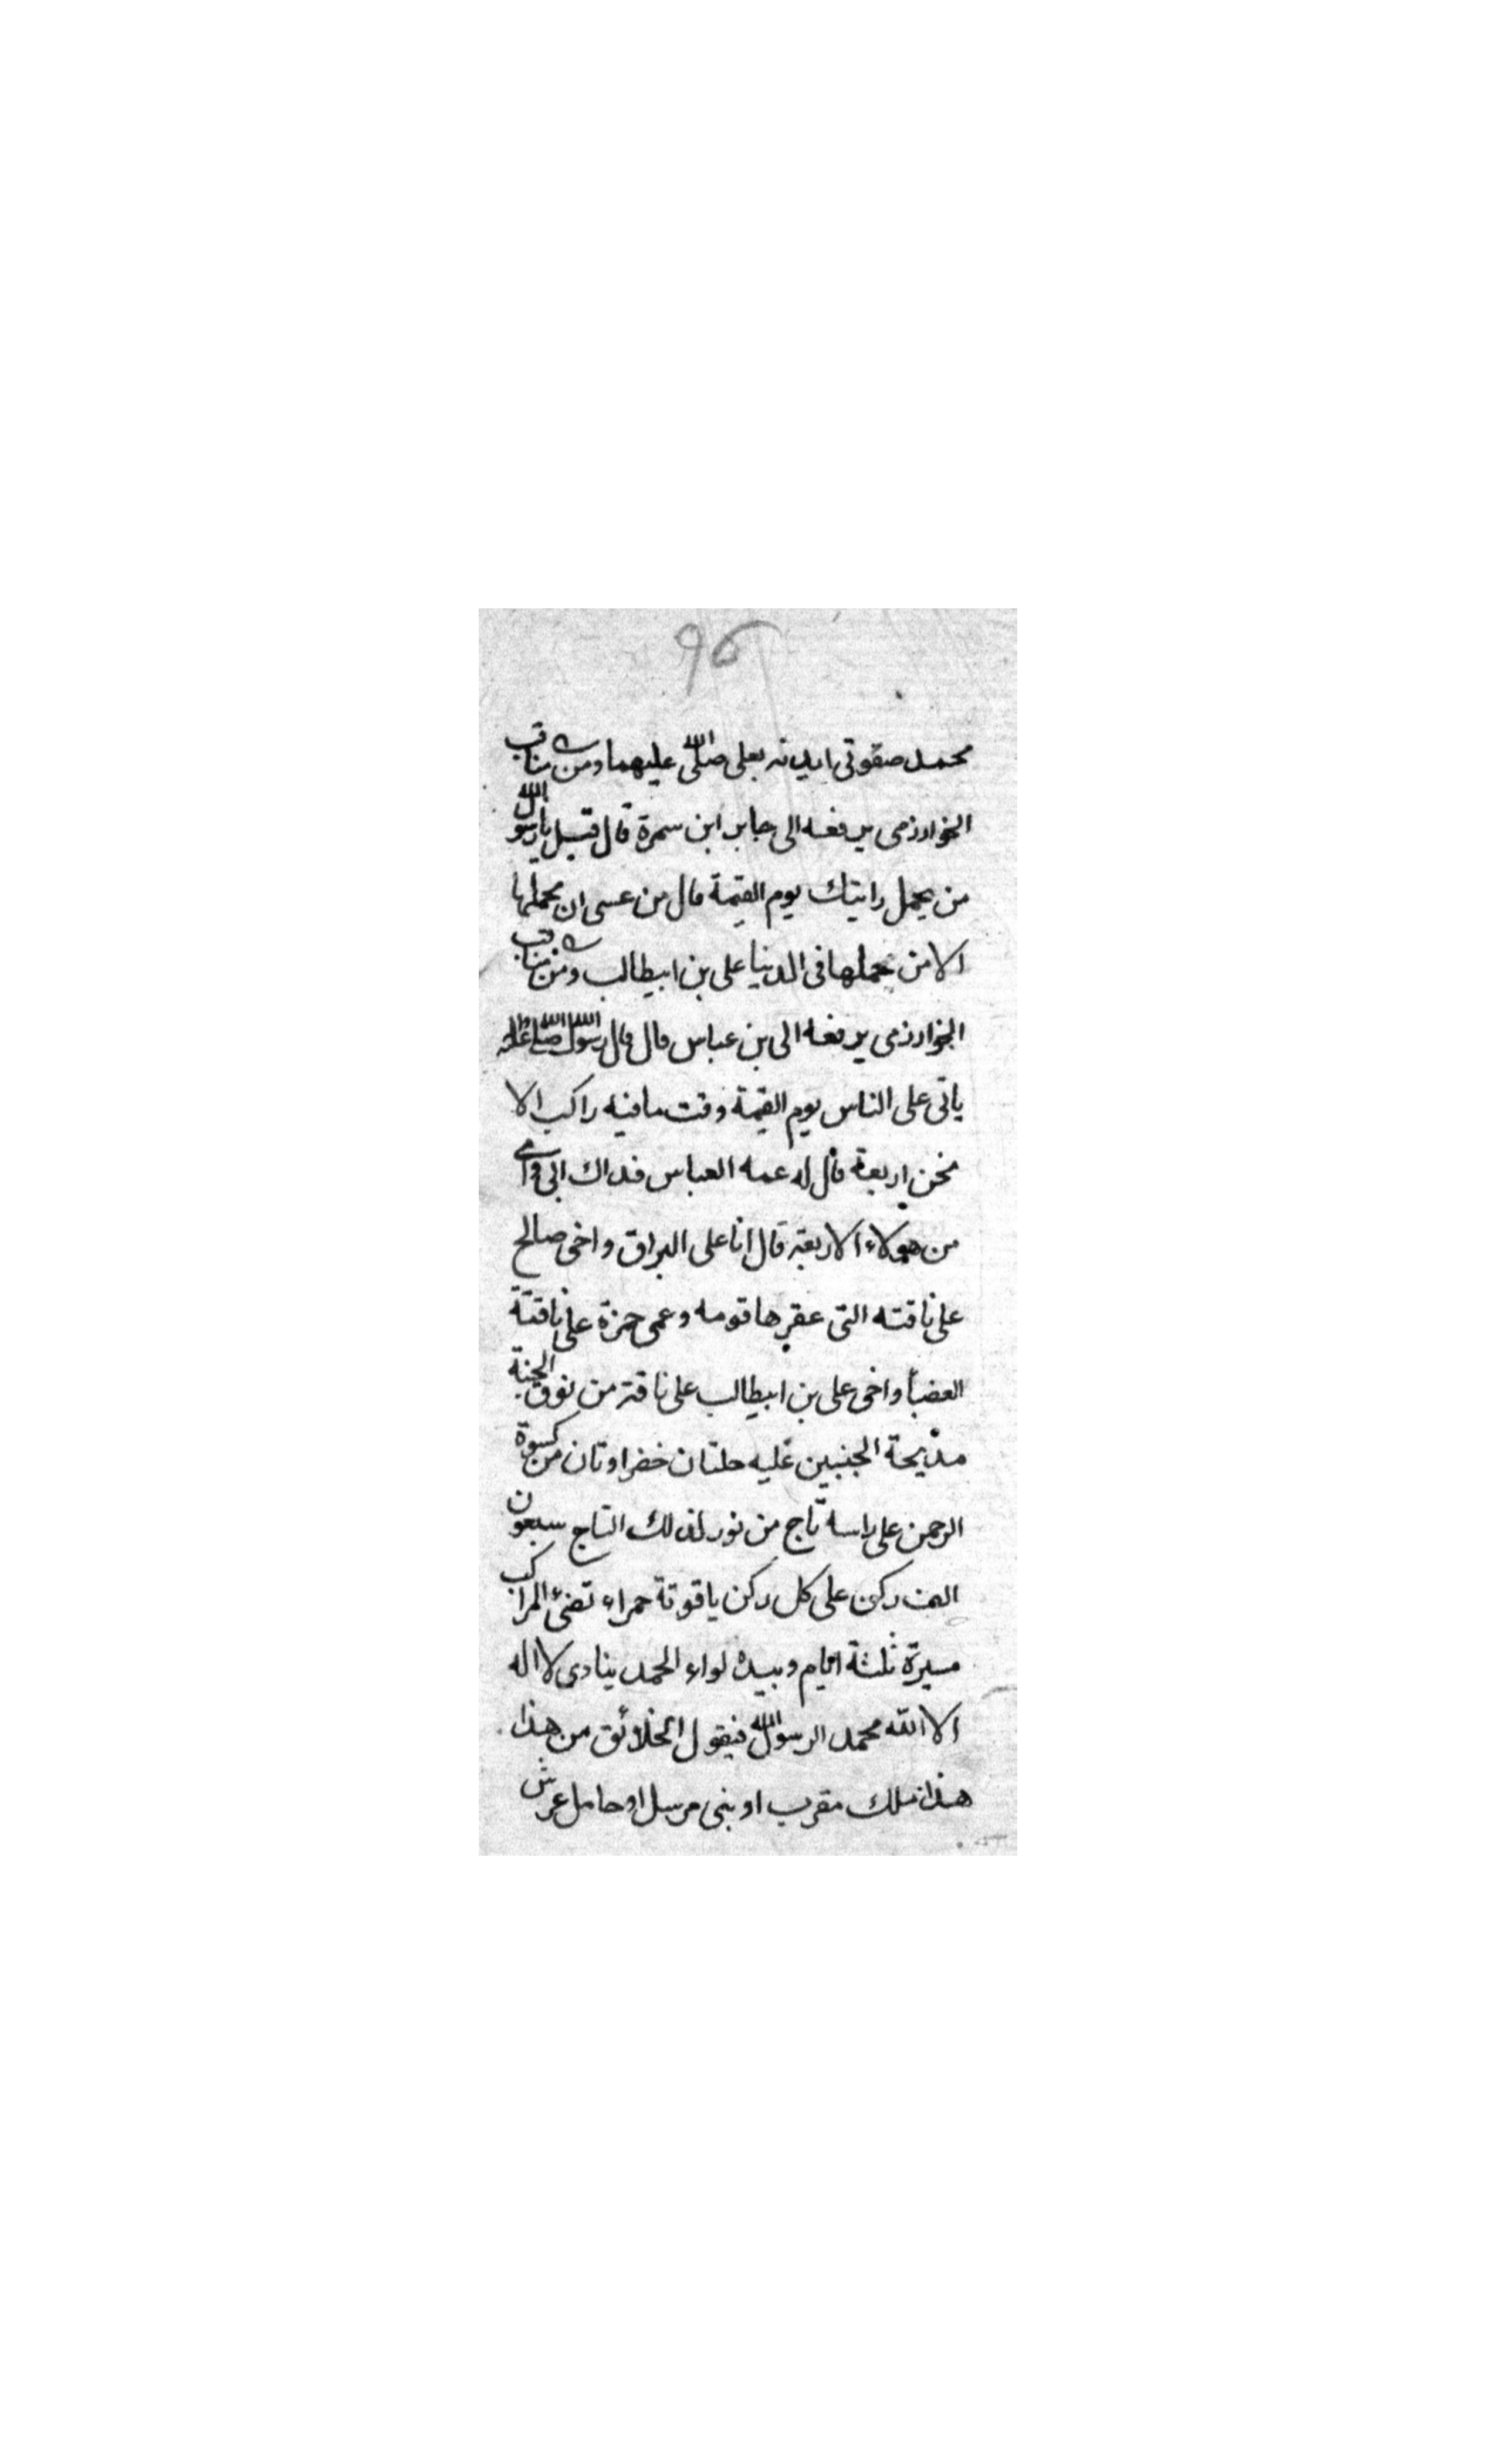 96
محمد صفوتى ايدته بعلى صلى الله عليهما ومن مناقب
الخوارزمى يرفعه الى جابر ابن سمرة قال قيل يا رسول الله
من يحمل رايتك يوم القيمة قال من عسى ان يحملها
الا من يحملها فى الدنيا على بن ابيطالب ومن مناقب
الخوارزمى يرفعه الى بن عباس قال قال رسول الله صلى الله عليه
ياتى على الناس يوم القيمة وقت ما فيه راكب الا
نحن اربعة قال له عمه العباس فداك ابى وامى
من هولاء الاربعة قال انا على البراق واخى صالح
على ناقته التى عقرها قومه وعمى حمزة على ناقتة
العضبا واخى على بن ابيطالب على ناقة من نوق الجنة
مذبحة الجنبين عليه حلتان خضراوتان من كسوة
الرحمن على راسه تاج من نور لذلك التاج سبعون
الف ركن على كل ركن ياقوتة حمراء تضئ المراكب
مسيرة ثلثة ايام وبيده لواء الحمد ينادى لا اله
الا الله محمد الرسول الله فيقول الخلائق من هذا
هذا ملك مقرب او نبى مرسل او حامل عرش